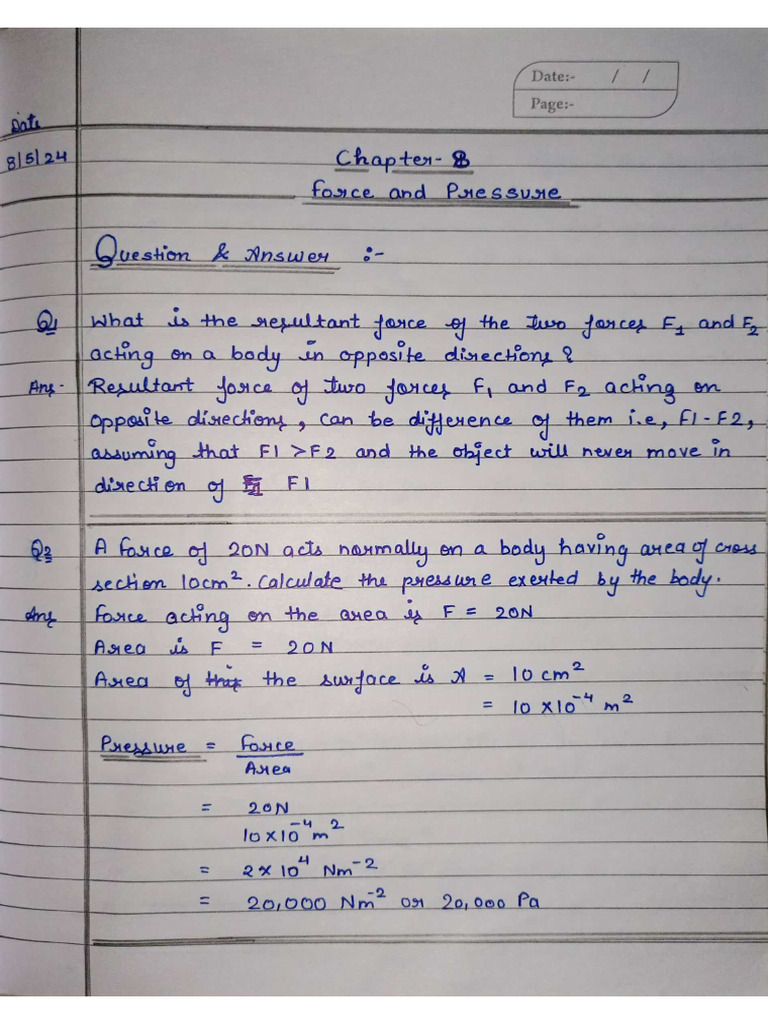 Date:- / /
Page:-
Date
8/5/24
Chapter- 8
Force and Pressure
Question & Answer :-
Q1 What is the resultant force of the two forces F₁ and F₂
acting on a body in opposite directions?
Ans- Resultant force of two forces F₁ and F₂ acting on
opposite directions, can be difference of them i.e, F1-F2,
assuming that F1 >F2 and the object will never move in
direction of F1
Q2 A force of 20N acts normally on a body having area of cross
section 10cm². Calculate the pressure exerted by the body.
Ans Force acting on the area is F = 20N
Area is F = 20N
Area of the surface is A = 10 cm²
= 10 ×10⁻⁴ m²
Pressure = Force
Area
= 20N
10×10⁻⁴ m²
= 2×10⁴ Nm⁻²
= 20,000 Nm⁻² or 20,000 Pa